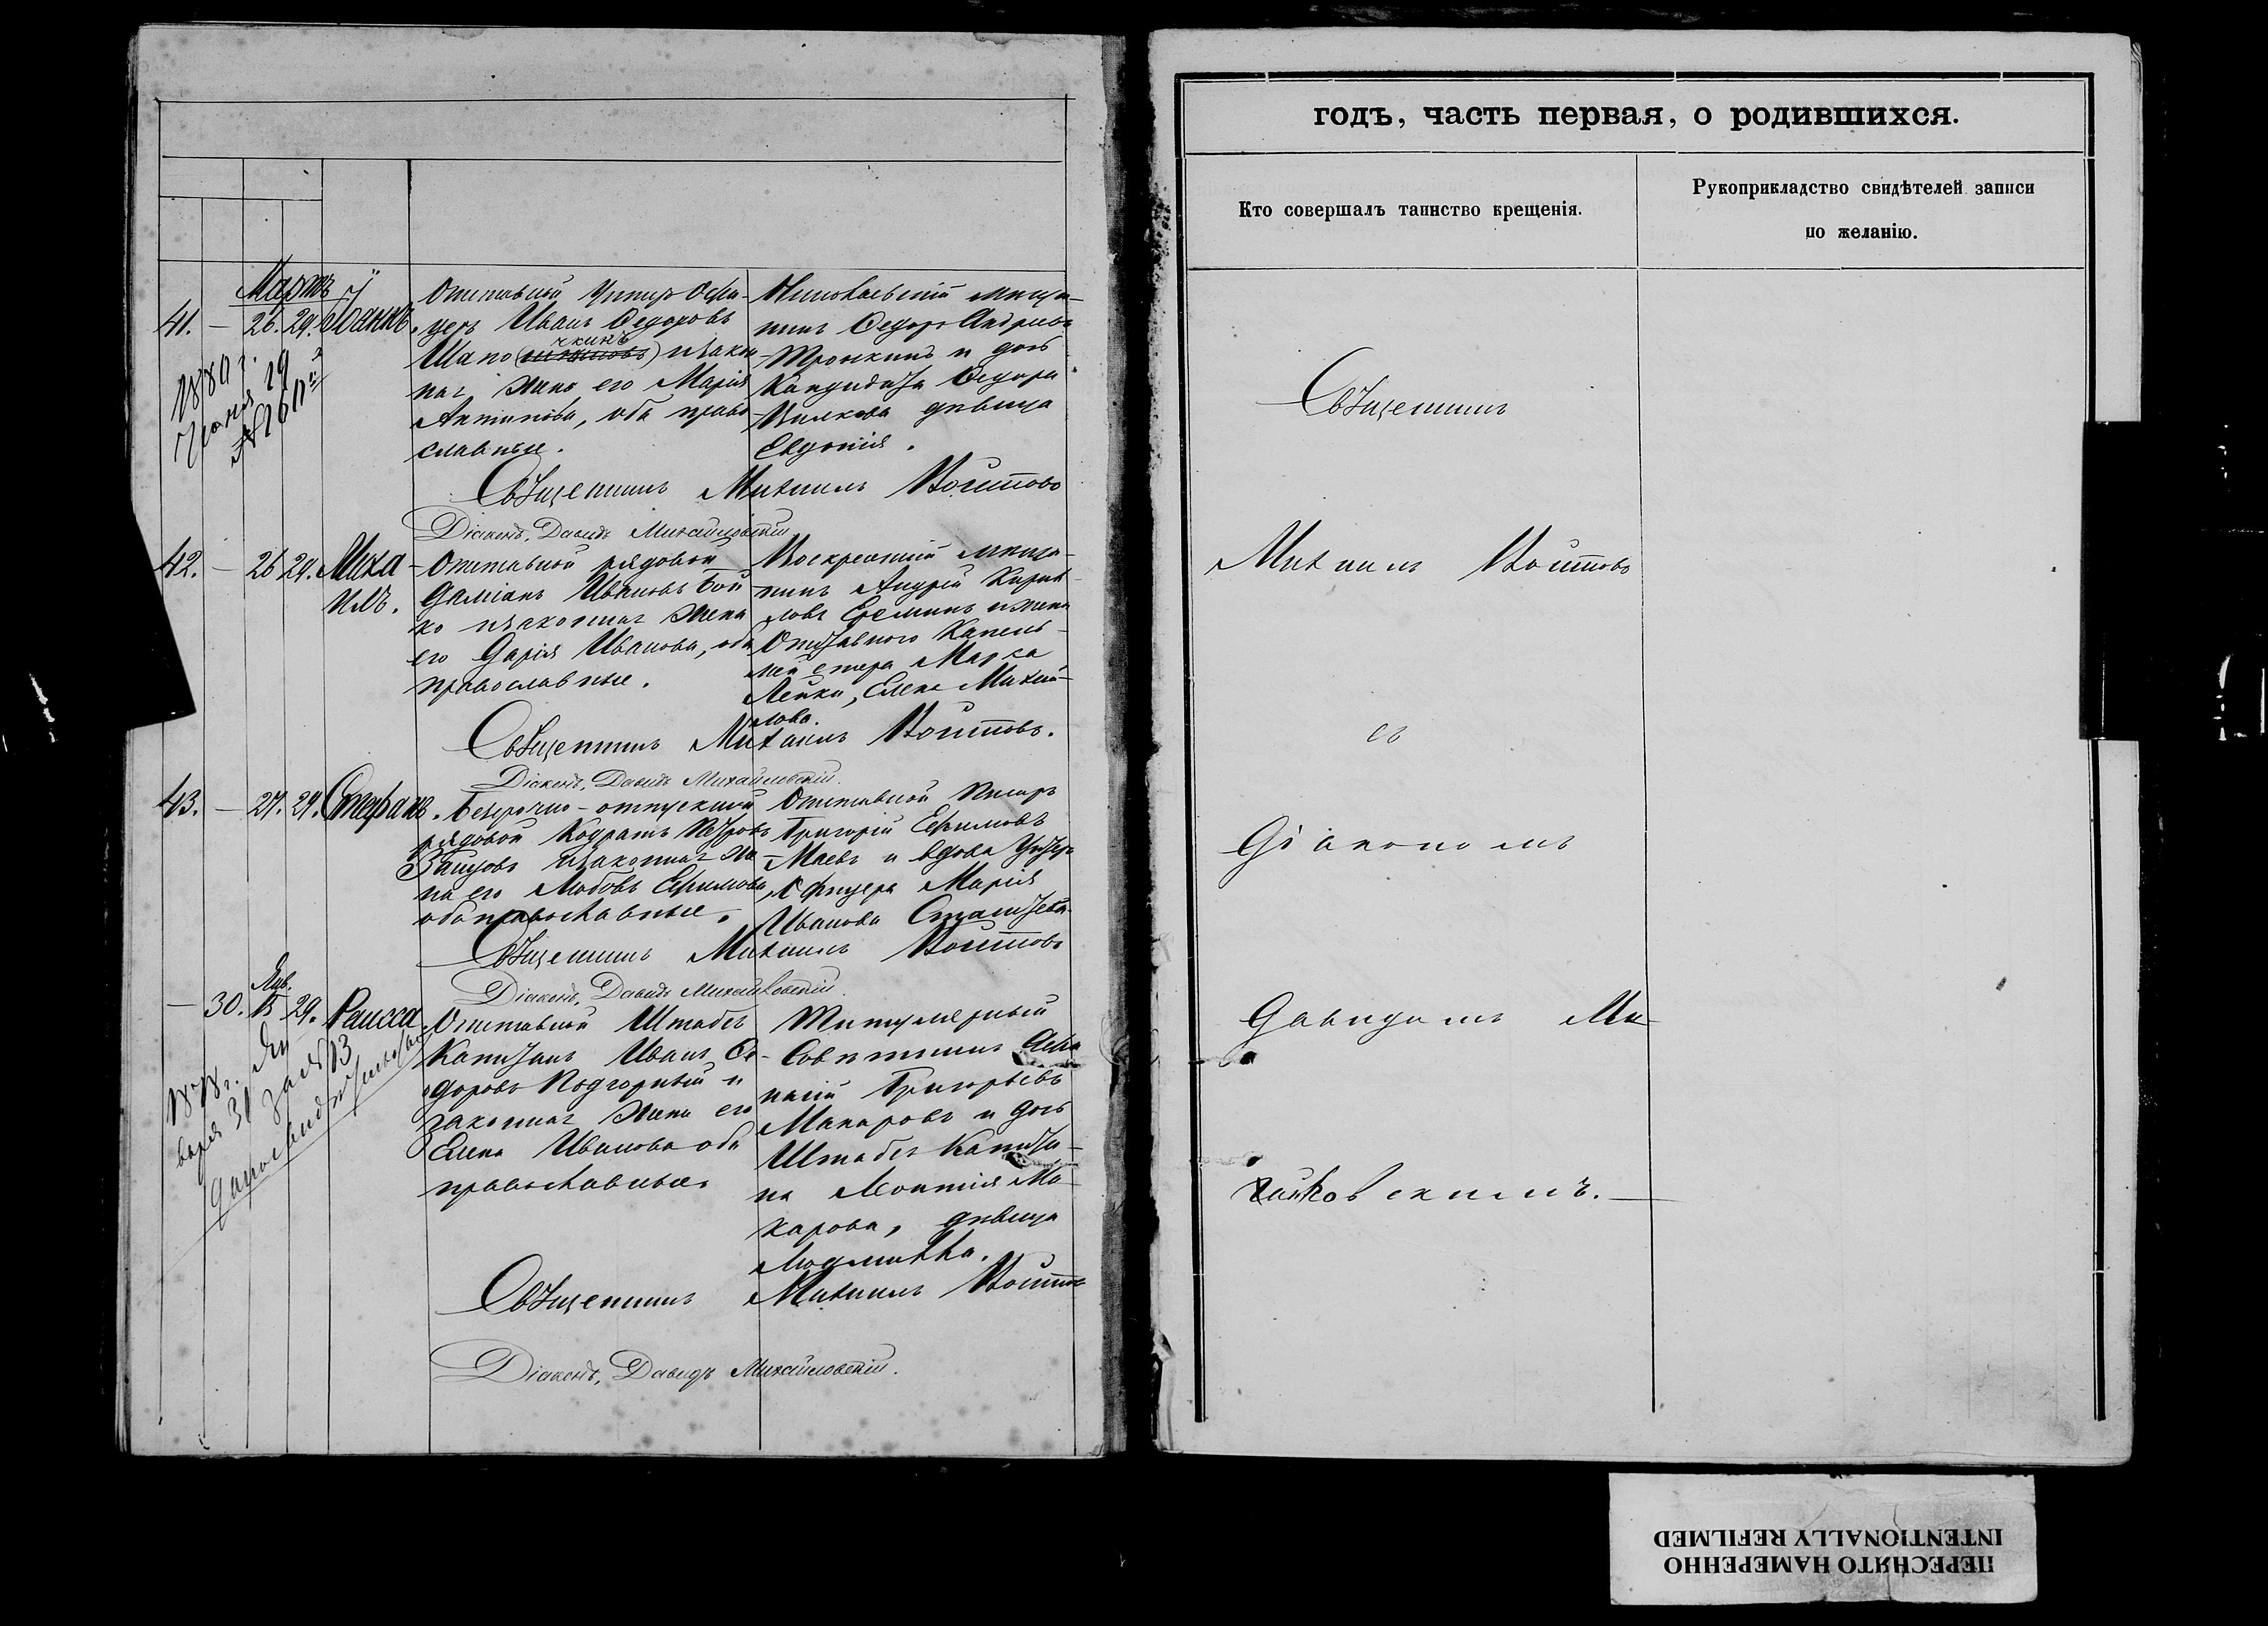 Мартъ
41. — 26. 29. Іоаннъ.
Отставной Унтеръ Офи-
церъ Иванъ Федоровъ
чкинъ
Шапо( ) и закон
ная жена его Марія
Антипова, оба право-
славные.
Николаевскій мѣща-
нинъ Федоръ Андреевъ
Тронкинъ и дочь
Кандидата Федора
девица
Евдокія.
1880 г.
Іюня 19
№
Священникъ Михаилъ Войтовъ
Діаконъ, Давидъ Михайловскій
42. — 26 29. Миха-
илъ.
Отставной рядовой
Даміанъ Ивановъ Бой
ко и законная жена
его Дарія Иванова, оба
православные.
Воскресенскій мѣща-
нинъ Андрей Кирил-
ловъ Еремин и жена
Отставного Капель-
мейстера Марка
Лейки, Елена Михай-
лова.
Священникъ Михаилъ Войтовъ.
Діаконъ, Давидъ Михайловскій.
43. — 27. 29. Стефанъ.
Безсрочно-отпускной
рядовой Кодратъ Петровъ
Зайцовъ и законная же-
на его Любовь Ефимова,
оба православные.
Отставной Писарь
Григорій Ефимовъ
Маевъ и вдова Унтеръ
Офицера Марія
Иванова
Священникъ Михаилъ Войтовъ
Діаконъ, Давидъ Михайловскій.
Янв.
— 30. 15 29. Раисса.
Отставной Штабсъ
Капитанъ Иванъ Фе-
доровъ Подгорный и
законная жена его
Елена Иванова оба
православные.
Титулярный
Совѣтникъ Афа
насій Григорьевъ
Макаровъ и дочь
Штабсъ Капита-
на Леонтія Ма-
карова, девица
Людмилла.
1878 г. Ян
варя 31 за № 13
дано свидѣтельство
Священникъ Михаилъ Войтовъ
Діаконъ, Давидъ Михайловскій.
годъ, часть первая, о родившихся.
Кто совершалъ таинство крещенія.
Рукоприкладство свидѣтелей записи
по желанію.
Священникъ
Михаилъ Войтовъ
съ
Діакономъ
Давидомъ Ми-
хайловскимъ.
ПЕРЕСНЯТО НАМЕРЕННО
INTENTIONALLY REFILMED